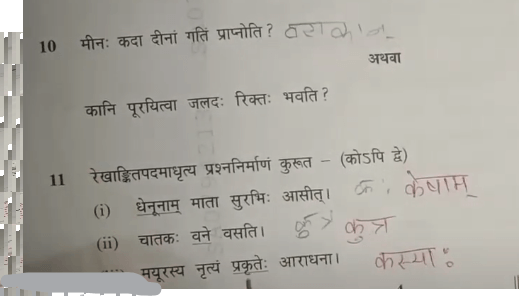 10 मीनः कदा दीनां गतिं प्राप्नोति?
अथवा
कानि पूरयित्वा जलदः रिक्तः भवति?
11 रेखाङ्कितपदमाधृत्य प्रश्ननिर्माणं कुरूत – (कोऽपि द्वे)
(i) धेनूनाम् माता सुरभिः आसीत्। केषाम्
(ii) चातकः वने वसति। कुत्र कुत्र
मयूरस्य नृत्यं प्रकृतेः आराधना। कस्याः